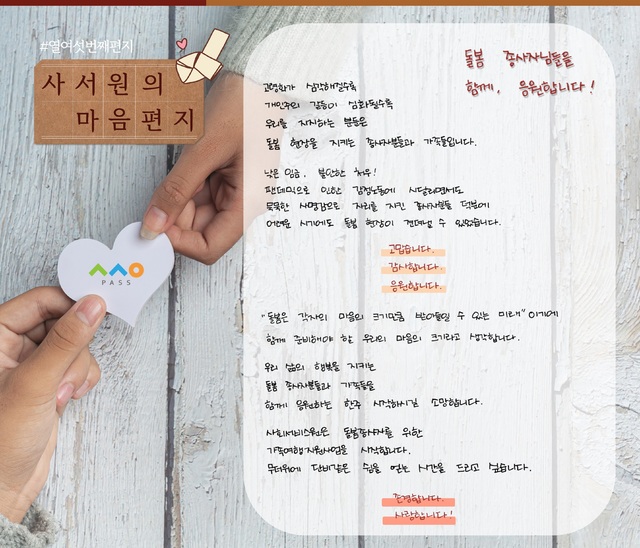 #열여섯번째편지
사서원의
마음편지
PASS
돌봄 종사자님들을
함께, 응원합니다!
고령화가 심각해질수록
개인주의 갈등이 심화될수록
우리를 지지하는 분들은
돌봄 현장을 지키는 종사자분들과 가족들입니다.
낮은 임금, 불안한 처우!
팬데믹으로 인한 감정노동에 시달리면서도
묵묵한 사명감으로 자리를 지킨 종사자분들 덕분에
어려운 시기에도 돌봄 현장이 견뎌낼 수 있었습니다.
고맙습니다.
감사합니다.
응원합니다.
"돌봄은 각자의 마음의 크기만큼 받아들일 수 있는 미래" 이기에
함께 준비해야 할 우리의 마음의 크기라고 생각합니다.
우리 삶의 행복을 지키는
돌봄 종사자분들과 가족들을
함께 응원하는 한주 시작하시길 소망합니다.
사회서비스원은 돌봄종사자를 위한
가족여행지원사업을 시작합니다.
무더위에 단비같은 쉼을 얻는 시간을 드리고 싶습니다.
존경합니다.
사랑합니다!